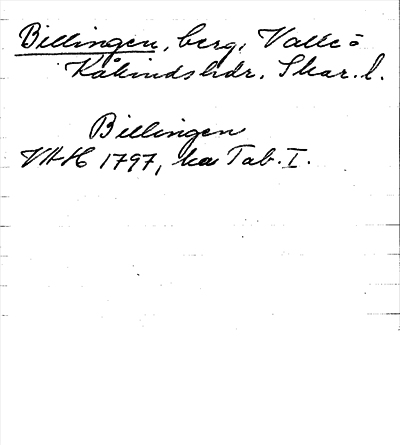 Billingen, berg, Valle o
Kåkindshdr. Skar. l.
Billingen
VAH 1797, Tab. I.